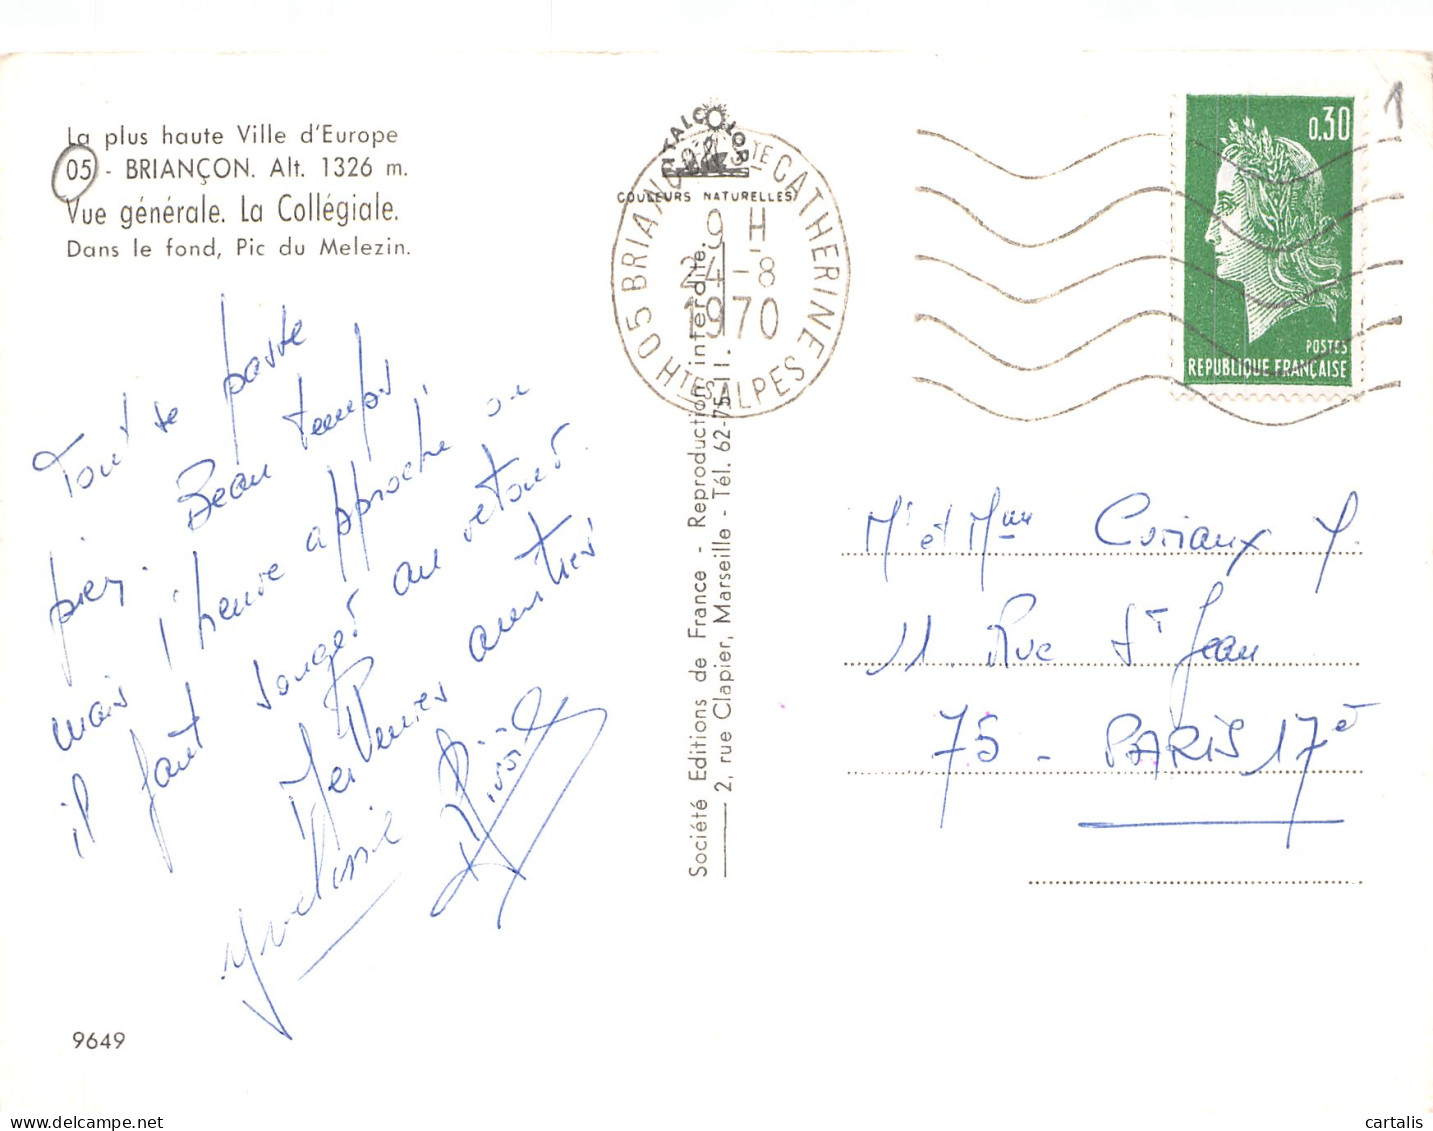 La plus haute Ville d'Europe
05 - BRIANÇON. Alt. 1326 m.
Vue générale. La Collégiale.
Dans le fond, Pic du Melezin.
Tout se passe
bien. Beau temps
mais l'heure approche où
il faut songer au retour.
amitiés
9649
VITALCOLOR
COULEURS NATURELLES
05 BRIANCON STE CATHERINE
HTES ALPES
9 H
24 - 8
1970
Société Editions de France - Reproduction interdite.
2, rue Clapier, Marseille - Tél. 62-75-11.
0,30
POSTES
REPUBLIQUE FRANÇAISE
1
Mr et Mme
11. Rue St Jean
75 - PARIS 17e
cartalis